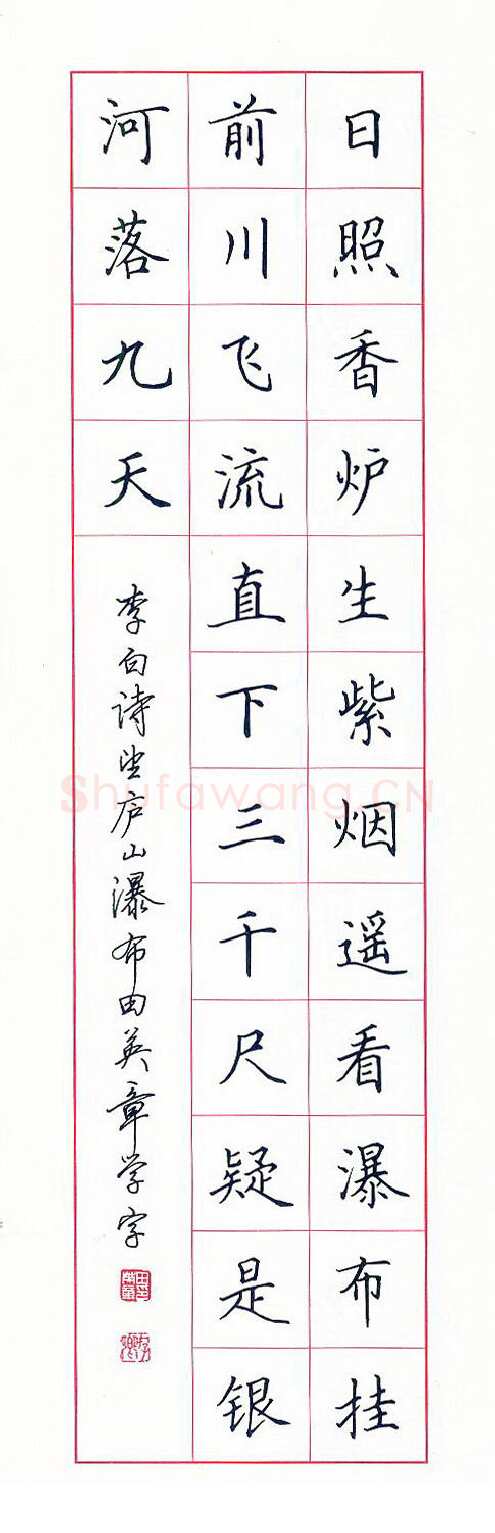 日照香炉生紫烟遥看瀑布挂
前川飞流直下三千尺疑是银
河落九天
李白诗望庐山瀑布田英章学字
Shufawang.CN